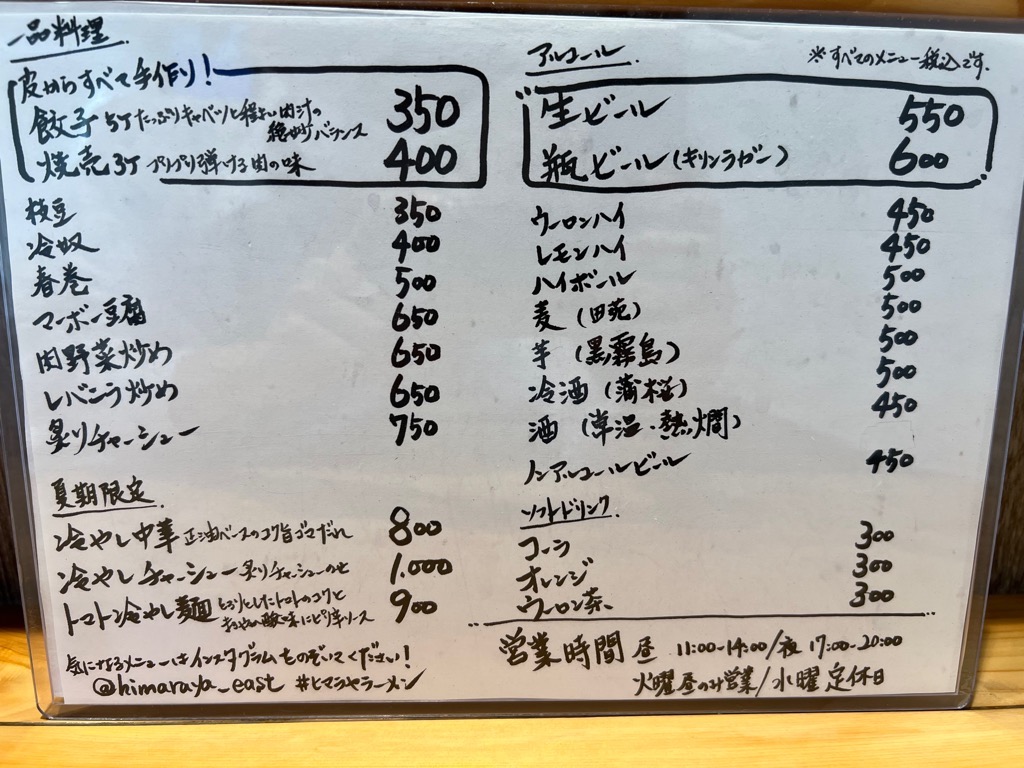 一品料理
皮からすべて手作り!
餃子 5ケ たっぷりキャベツと程よい肉汁の絶妙バランス 350
焼売 3ケ プリプリ弾ける肉の味 400
枝豆 350
冷奴 400
春巻 500
マーボー豆腐 650
肉野菜炒め 650
レバニラ炒め 650
炙りチャーシュー 750
夏期限定
冷やし中華 正油ベースのコク旨ゴマだれ 800
冷やしチャーシュー 炙りチャーシューのせ 1.000
トマト冷やし麺 とろりとしたトマトのコクと 酸味にピリ辛ソース 900
気になるメニューはインスタグラムものぞいてください!
@himaraya_east #ヒマラヤラーメン
※すべてのメニュー税込です.
アルコール
生ビール 550
瓶ビール(キリンラガー) 600
ウーロンハイ 450
レモンハイ 450
ハイボール 500
麦 (田苑) 500
芋 (黒霧島) 500
冷酒 (蒲桜) 500
酒 (常温・熱燗) 450
ノンアルコールビール 450
ソフトドリンク
コーラ 300
オレンジ 300
ウーロン茶 300
営業時間 昼 11:00-14:00/夜 17:00-20:00
火曜昼のみ営業/水曜定休日